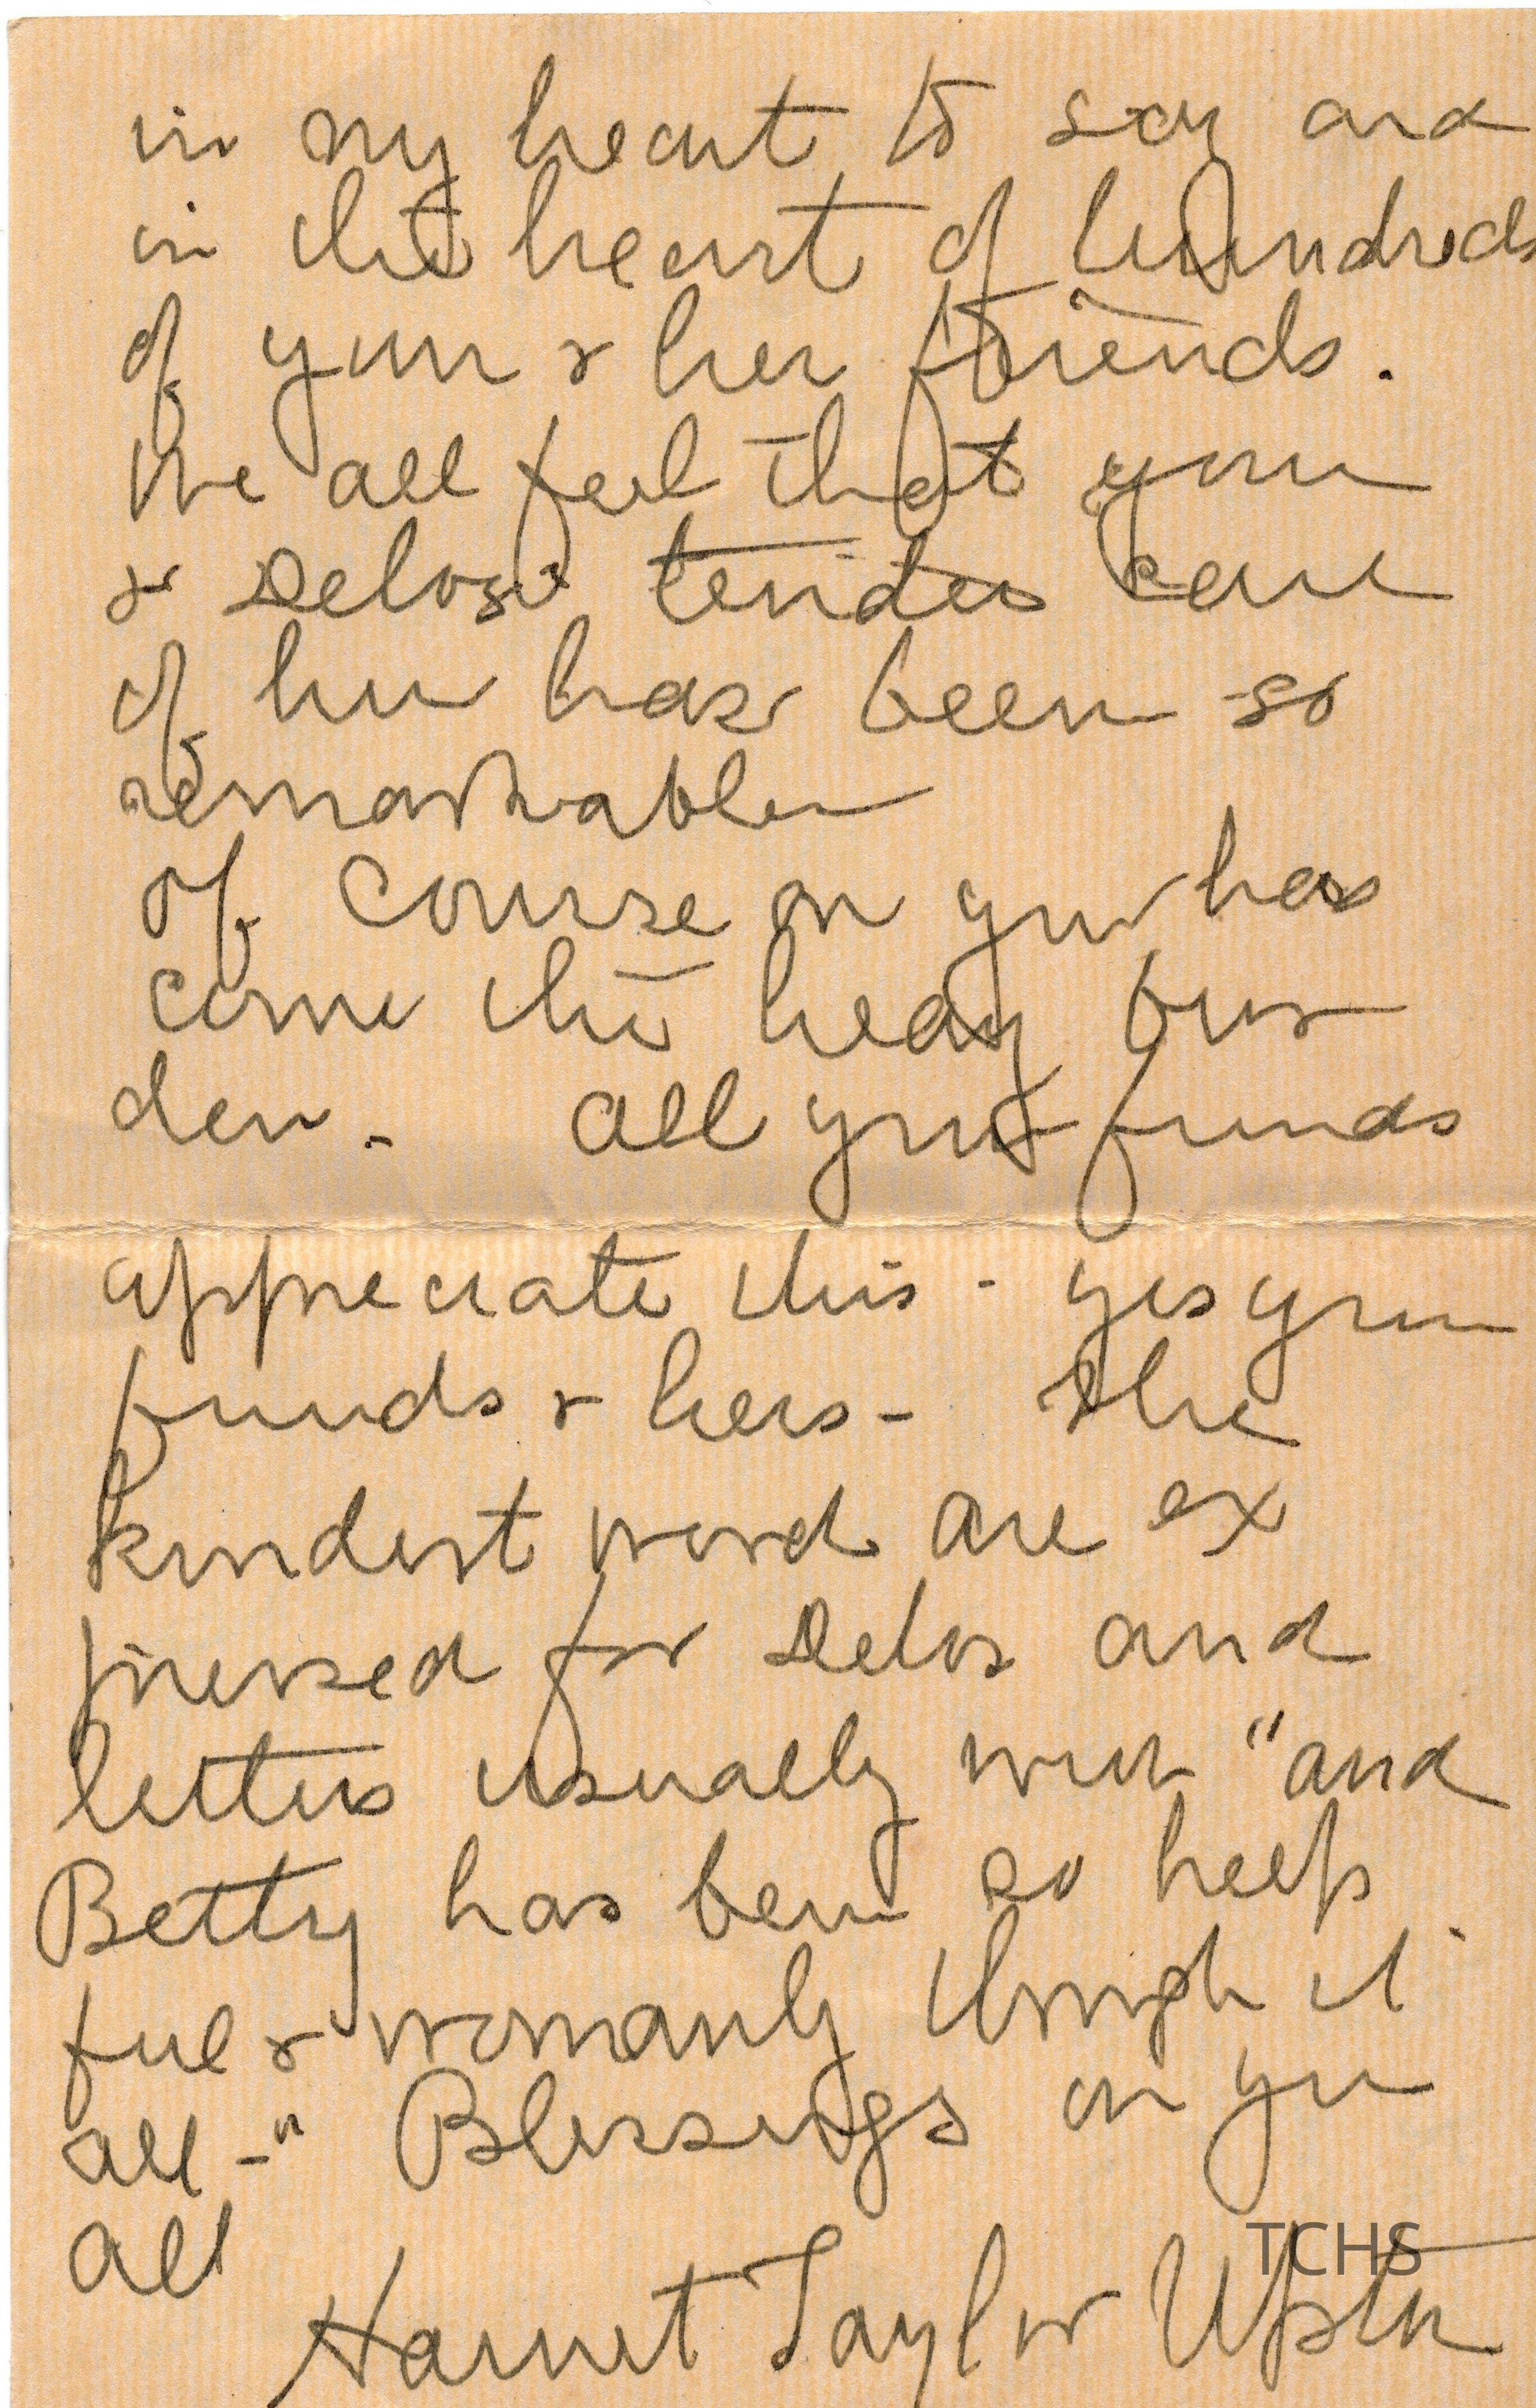 in my heart to say and
in the heart of hundreds
of your & her friends.
We all feel that your
& Delos' tender care
of her has been so
remarkable
Of course on you has
come the heavy bur
den. - All your friends
appreciate this - yes your
friends & hers - The
kindest word are ex
pressed for Delos and
letters usually "and
Betty has been so help
ful & womanly through it
all - " Blessings on you
all
Harriet Taylor Upton
TCHS